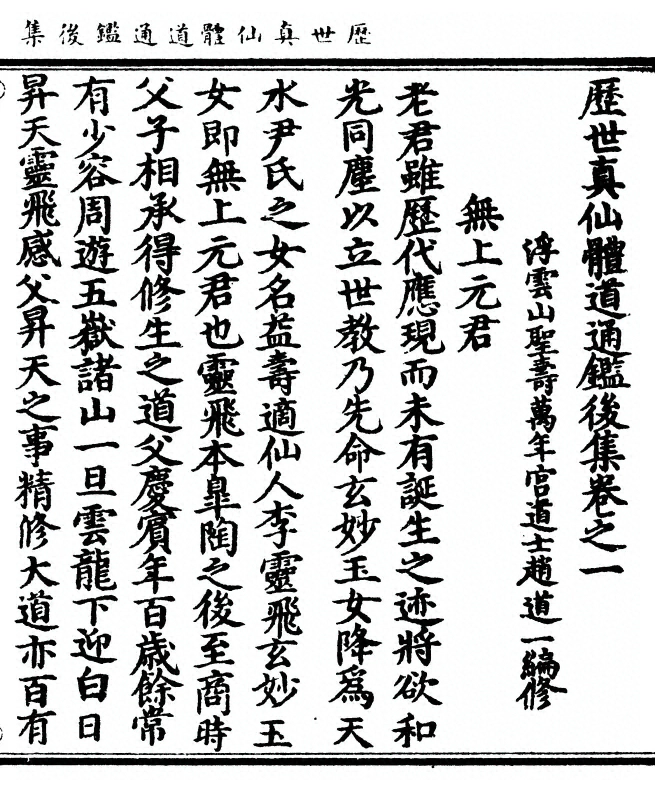 歷世真仙體道通鑑後集
歷世真仙體道通鑑後集卷之一
浮雲山聖壽萬年宮道士趙道一編修
無上元君
老君雖歷代應現而未有誕生之迹將欲和
光同塵以立世教乃先命玄妙玉女降爲天
水尹氏之女名益壽適仙人李靈飛玄妙玉
女即無上元君也靈飛本臯陶之後至商時
父子相承得修生之道父慶賓年百歲餘常
有少容周遊五嶽諸山一旦雲龍下迎白日
昇天靈飛感父昇天之事精修大道亦百有